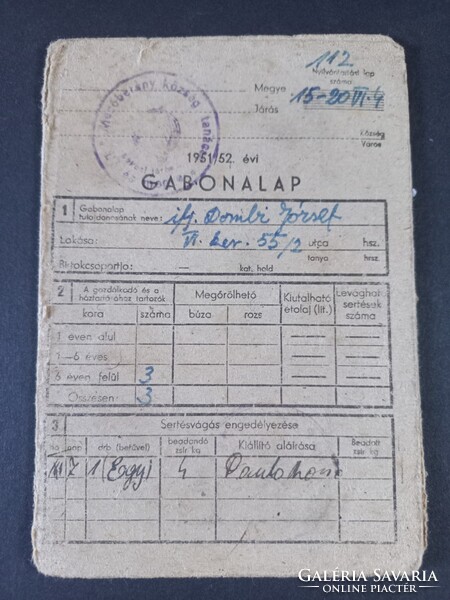 112
Nyilvántartási lap
száma
Megye 15-20 VI.4
Járás
Község
Város
Mezőberény Község tanácsa
1951/52. évi
GABONALAP
1 Gabonalap
tulajdonosának neve: ifj. Dombi József
Lakása: VI. ker. 55/2 utca hsz.
tanya hrsz.
Birtokcsoportja: — kat. hold
2 A gazdálkodó és a
háztartásához tartozók
Megőrölhető
Kiutalható
étolaj (lit.)
Levágható
sertések
száma
kora száma búza rozs
1 éven alul
1—6 éves
6 éven felül 3
Összesen: 3
3 Sertésvágás engedélyezése
hó nap drb. (betűvel) beadandó
zsír kg Kiállító aláírása Beadott
zsír kg
7 1 (Eggy) 4
GALÉRIA SAVARIA
ONLINE PIACTÉR